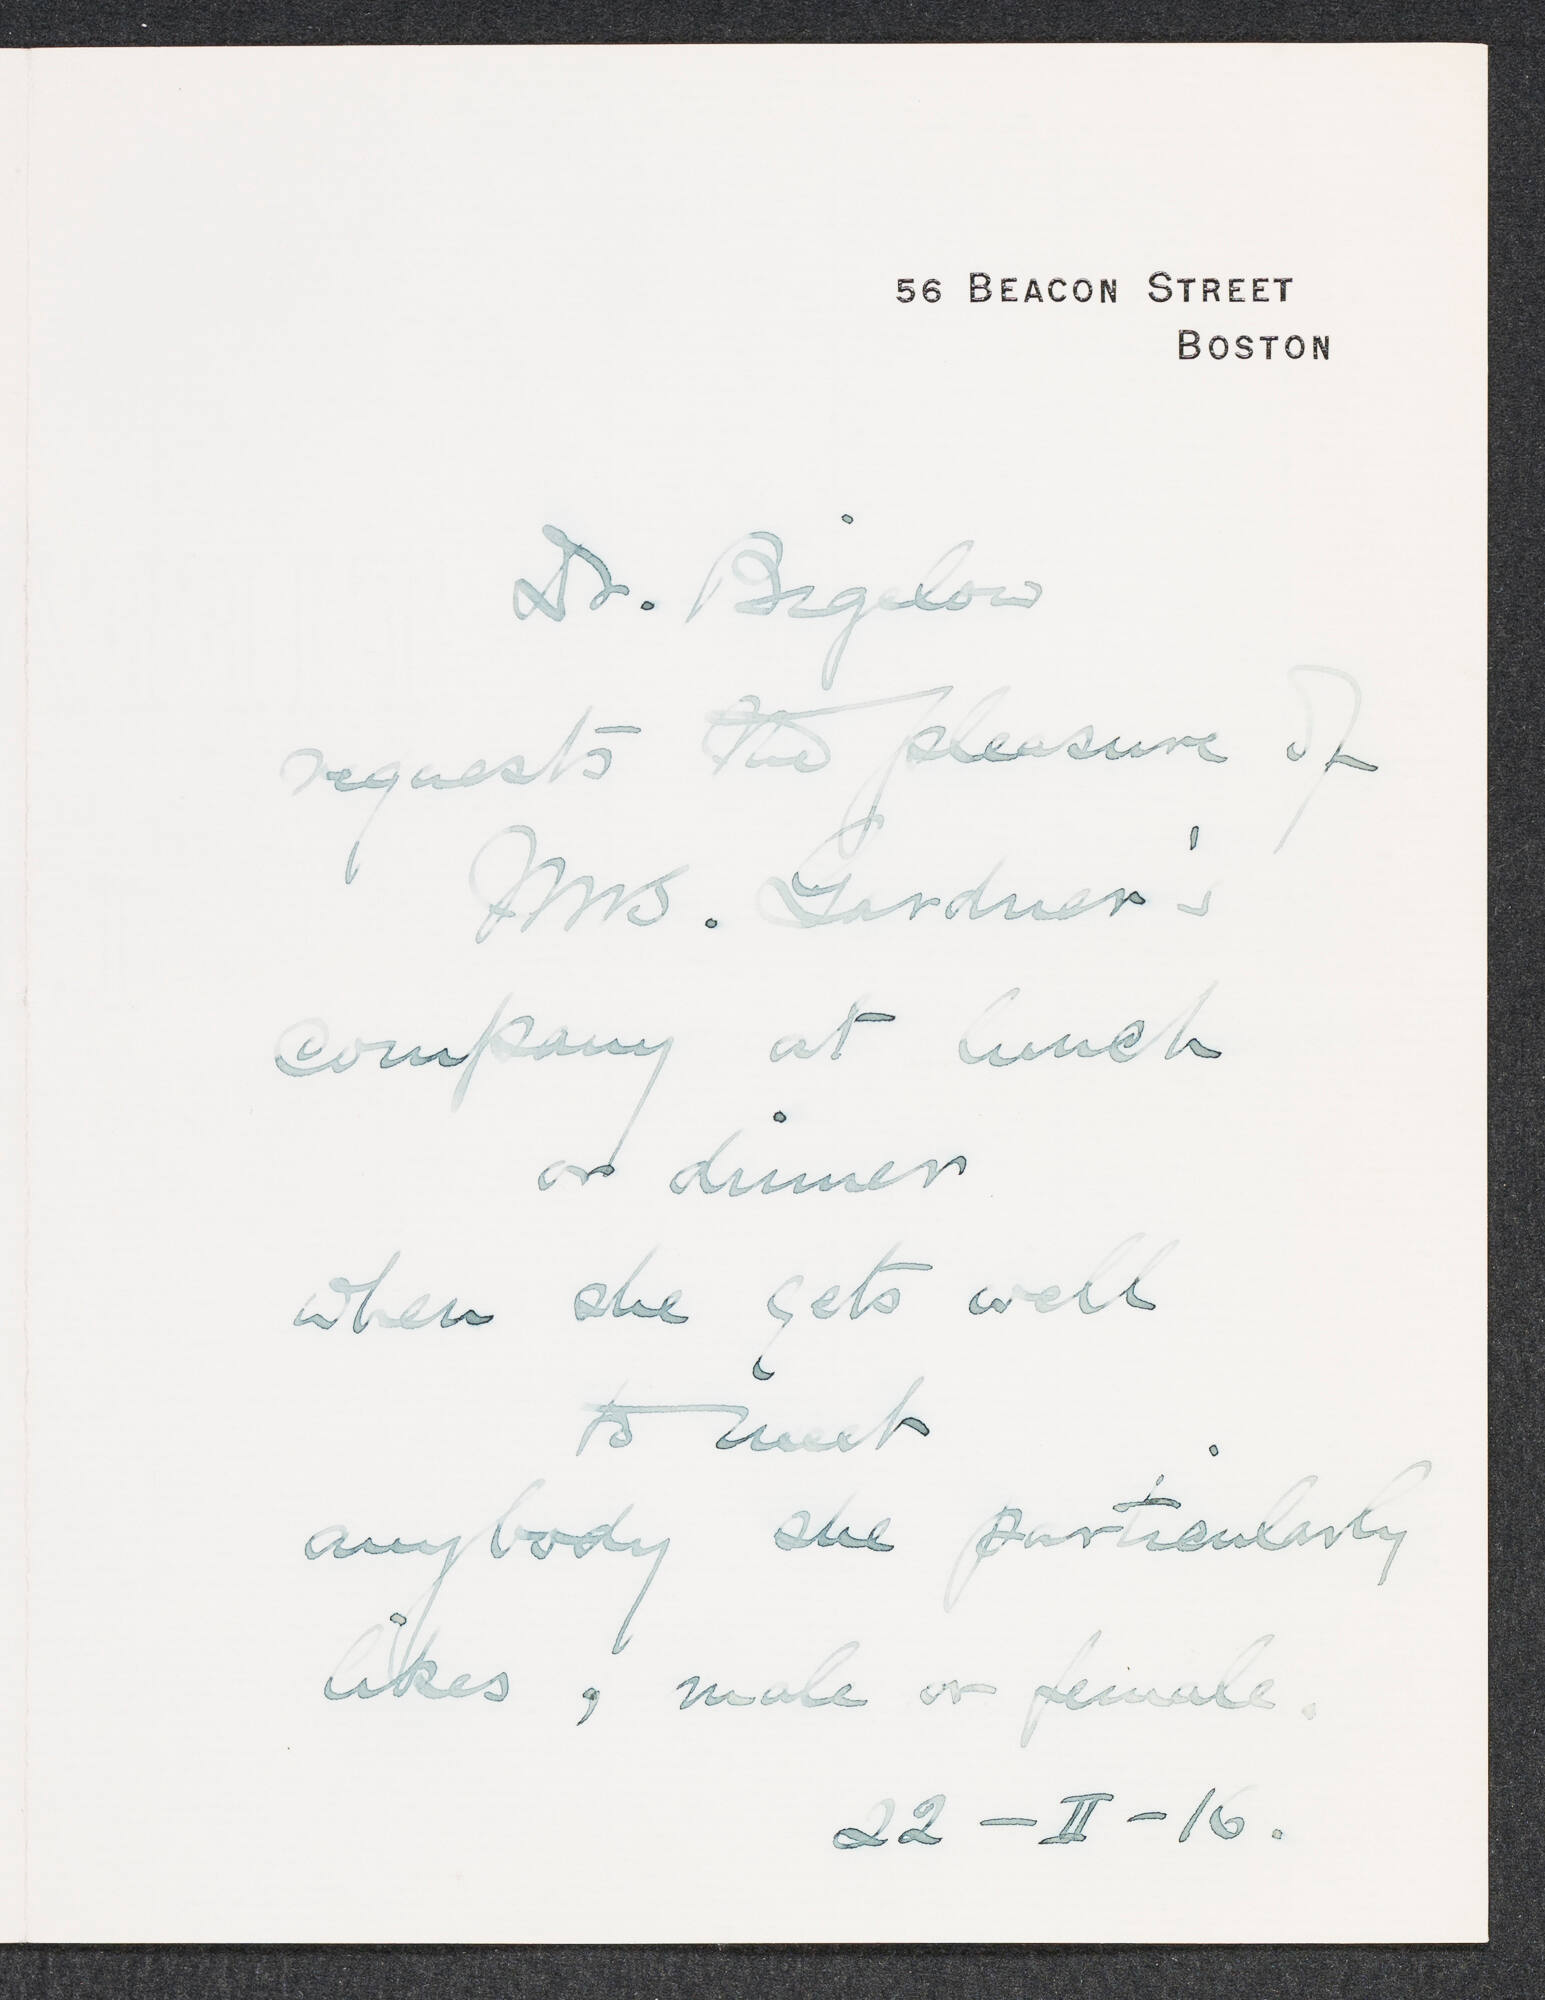 56 BEACON STREET
BOSTON
Dr. Bigelow
requests the pleasure of
Mrs. Gardner's
company at lunch
or dinner
when she gets well
to meet
anybody she particularly
likes, male or female.
22 - II - 16.